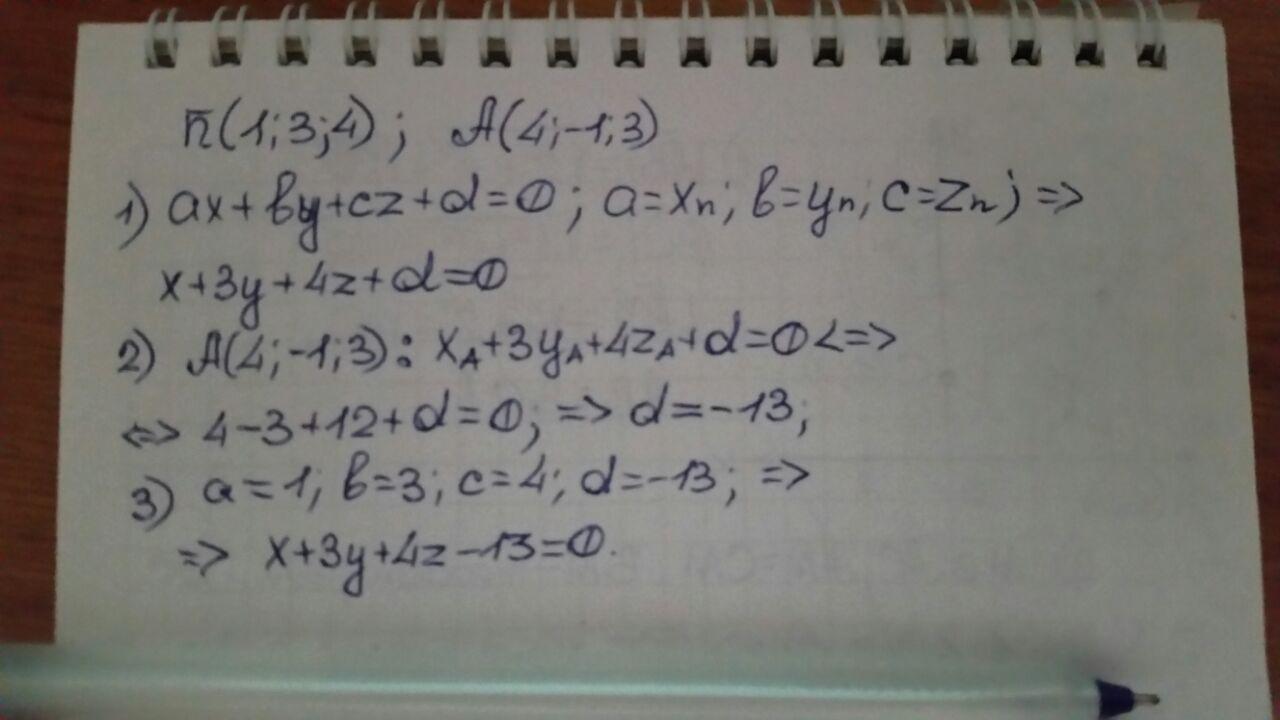 n̄(1;3;4); A(4;-1;3)
1) ax+вy+cz+d=0; a=xn; в=yn; c=zn; =>
x+3y+4z+d=0
2) A(4;-1;3): xA+3yA+4zA+d=0<=>
<=> 4-3+12+d=0; => d=-13;
3) a=1; в=3; c=4; d=-13; =>
=> x+3y+4z-13=0.